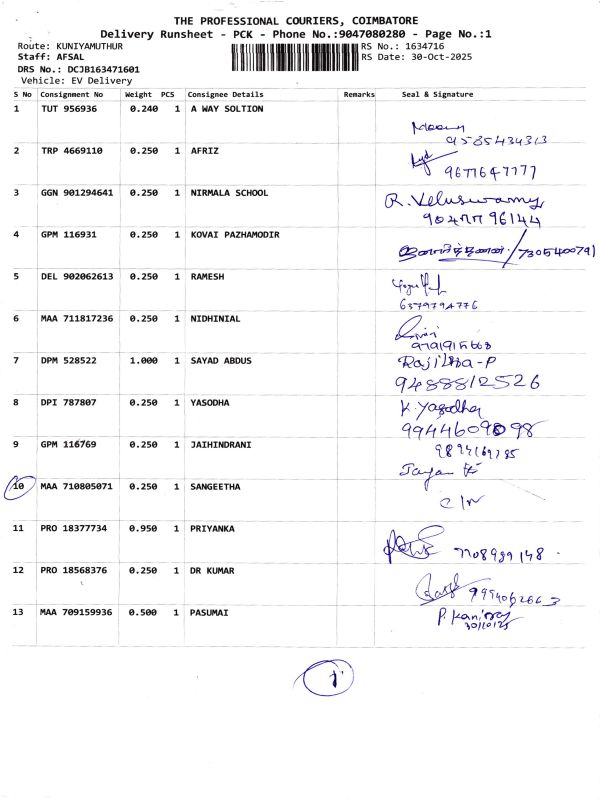 THE PROFESSIONAL COURIERS, COIMBATORE
Delivery Runsheet - PCK - Phone No.:9047080280 - Page No.:1
Route: KUNIYAMUTHUR RS No.: 1634716
Staff: AFSAL RS Date: 30-Oct-2025
DRS No.: DCJB163471601
Vehicle: EV Delivery
S No Consignment No Weight PCS Consignee Details Remarks Seal & Signature
1 TUT 956936 0.240 1 A WAY SOLTION
9585434313
2 TRP 4669110 0.250 1 AFRIZ
9677647777
3 GGN 901294641 0.250 1 NIRMALA SCHOOL R. Veluswamy
9047796144
4 GPM 116931 0.250 1 KOVAI PAZHAMODIR
/7305400791
5 DEL 902062613 0.250 1 RAMESH
6379794776
6 MAA 711817236 0.250 1 NIDHINIAL
7 DPM 528522 1.000 1 SAYAD ABDUS Rajitha-P
9488812526
8 DPI 787807 0.250 1 YASODHA K. Yasodha
9944609098
9 GPM 116769 0.250 1 JAIHINDRANI
10 MAA 710805071 0.250 1 SANGEETHA
11 PRO 18377734 0.950 1 PRIYANKA
7708999148
12 PRO 18568376 0.250 1 DR KUMAR
13 MAA 709159936 0.500 1 PASUMAI
30/10/25